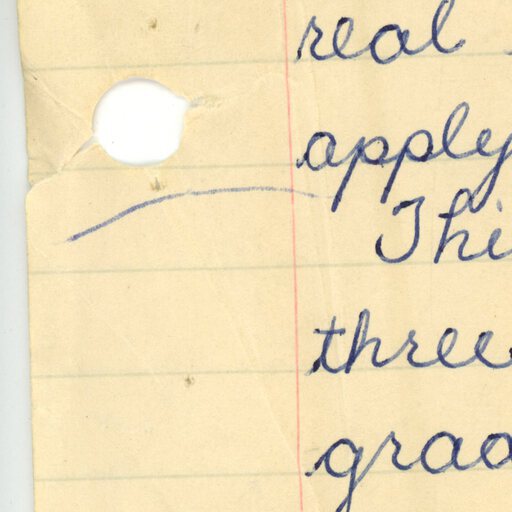 real
apply
Thi
three
grad